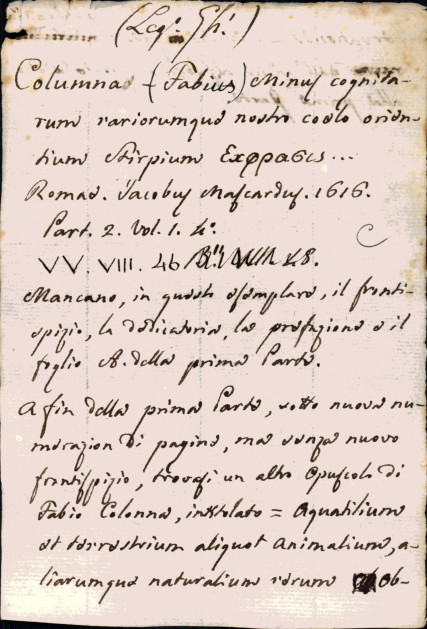 (Leg.º Gh.i)
Columna (Fabius) Minus cognita-
rum rariorumque nostro coelo orien-
tium Stirpium Εχφρασις...
Romae. Jacobus Mascardus. 1616.
Part. 2. Vol. 1. 4.º
VV. VIII. 46
Mancano, in questo esemplare, il fronti-
spizio, la dedicatoria, la prefazione e il
foglio A. della prima Parte.
A fin della prima Parte, sotto nuova nu-
merazion di pagine, ma senza nuovo
frontispizio, trovasi un altro Opuscolo di
Fabio Colonna, intitolato = Aquatilium
et terrestrium aliquot Animalium, a-
liarumque naturalium rerum Ob-